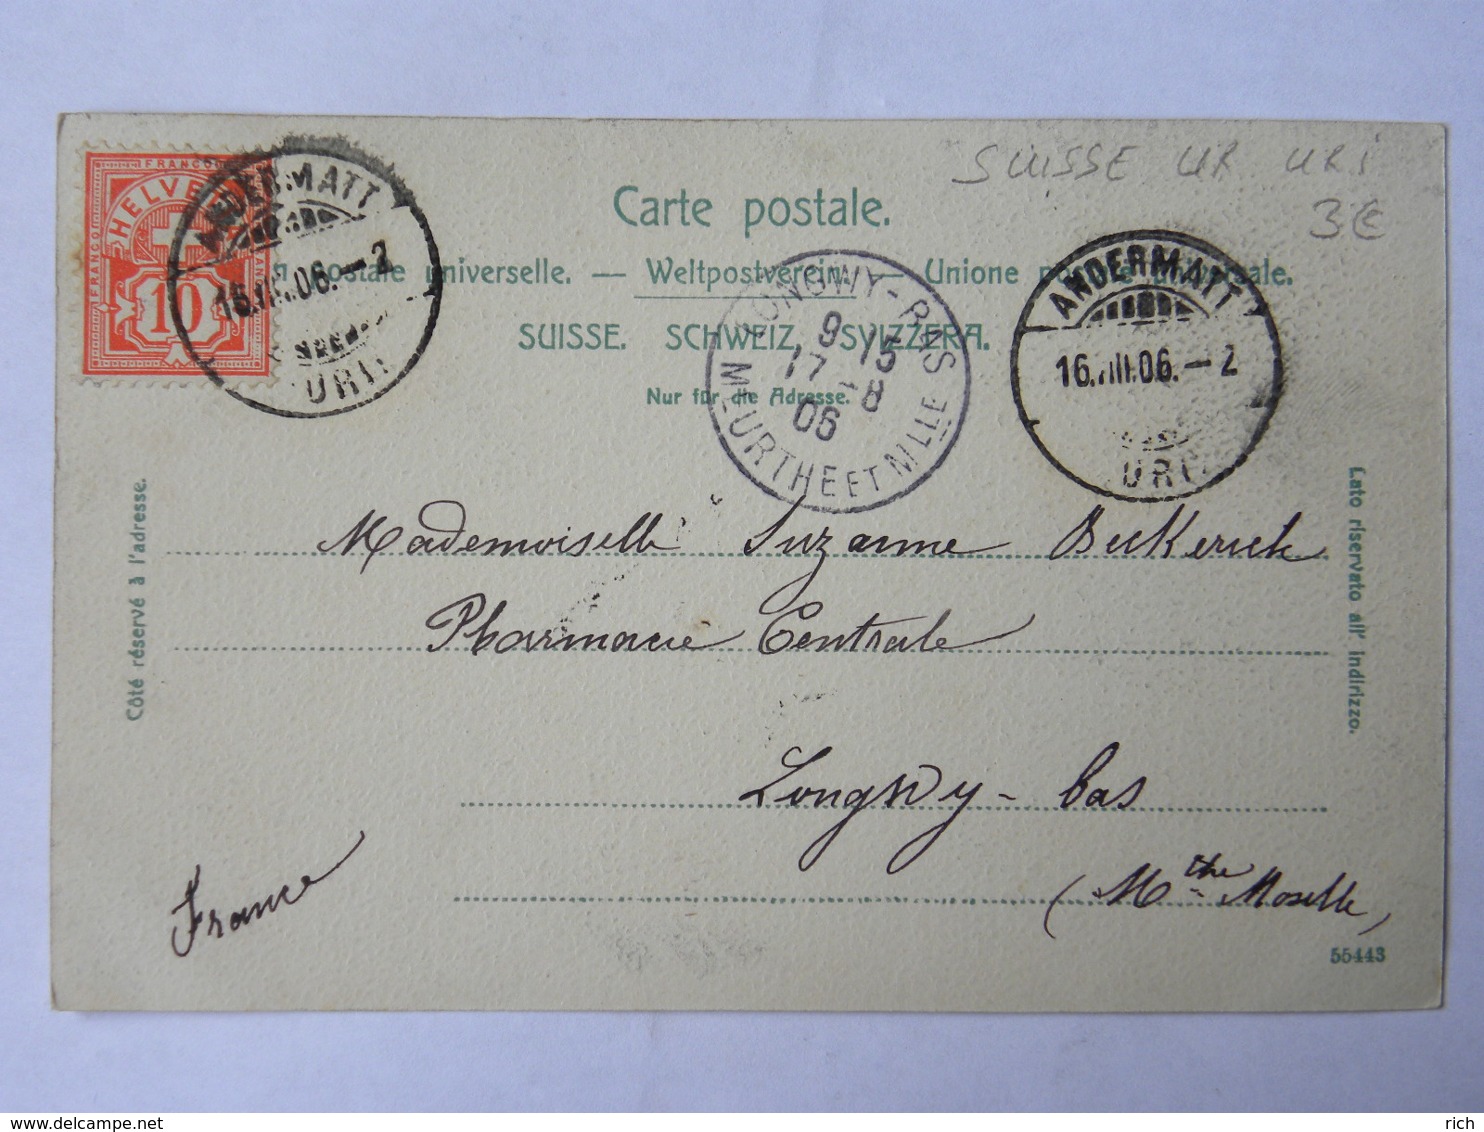 SUISSE UR URI
3€
Carte postale.
postale universelle. — Weltpostverein. — Unione postale universale.
SUISSE. SCHWEIZ. SVIZZERA.
Nur für die Adresse.
FRANCO
HELVETIA
FRANCO
10
ANDERMATT
16.VIII.06.–2
URI
LONGWY-BAS
9 15
17 -8
06
MEURTHE ET MLLE
ANDERMATT
16.VIII.06.–2
URI
Côté réservé à l'adresse.
Lato riservato all' indirizzo.
Mademoiselle Suzanne
Pharmacie Centrale
Longwy-bas
(Mthe Moselle)
France
55443
www.delcampe.net
rich